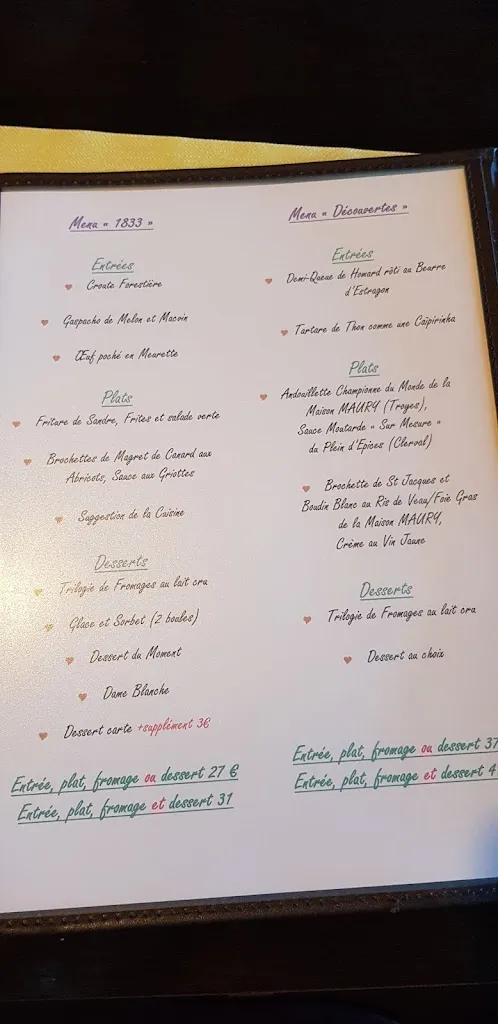 Menu « 1833 »
Entrées
Croute Forestière
Gaspacho de Melon et Macvin
Œuf poché en Meurette
Plats
Friture de Sandre, Frites et salade verte
Brochettes de Magret de Canard aux
Abricots, Sauce aux Griottes
Suggestion de la Cuisine
Desserts
Trilogie de Fromages au lait cru
Glace et Sorbet (2 boules)
Dessert du Moment
Dame Blanche
Dessert carte +supplément 3€
Entrée, plat, fromage ou dessert 27 €
Entrée, plat, fromage et dessert 31
Menu « Découvertes »
Entrées
Demi-Queue de Homard rôti au Beurre
d'Estragon
Tartare de Thon comme une Caïpirinha
Plats
Andouillette Championne du Monde de la
Maison MAURY (Troyes),
Sauce Moutarde « Sur Mesure »
du Plein d'Epices (Clerval)
Brochette de St Jacques et
Boudin Blanc au Ris de Veau/Foie Gras
de la Maison MAURY,
Crème au Vin Jaune
Desserts
Trilogie de Fromages au lait cru
Dessert au choix
Entrée, plat, fromage ou dessert 37
Entrée, plat, fromage et dessert 4